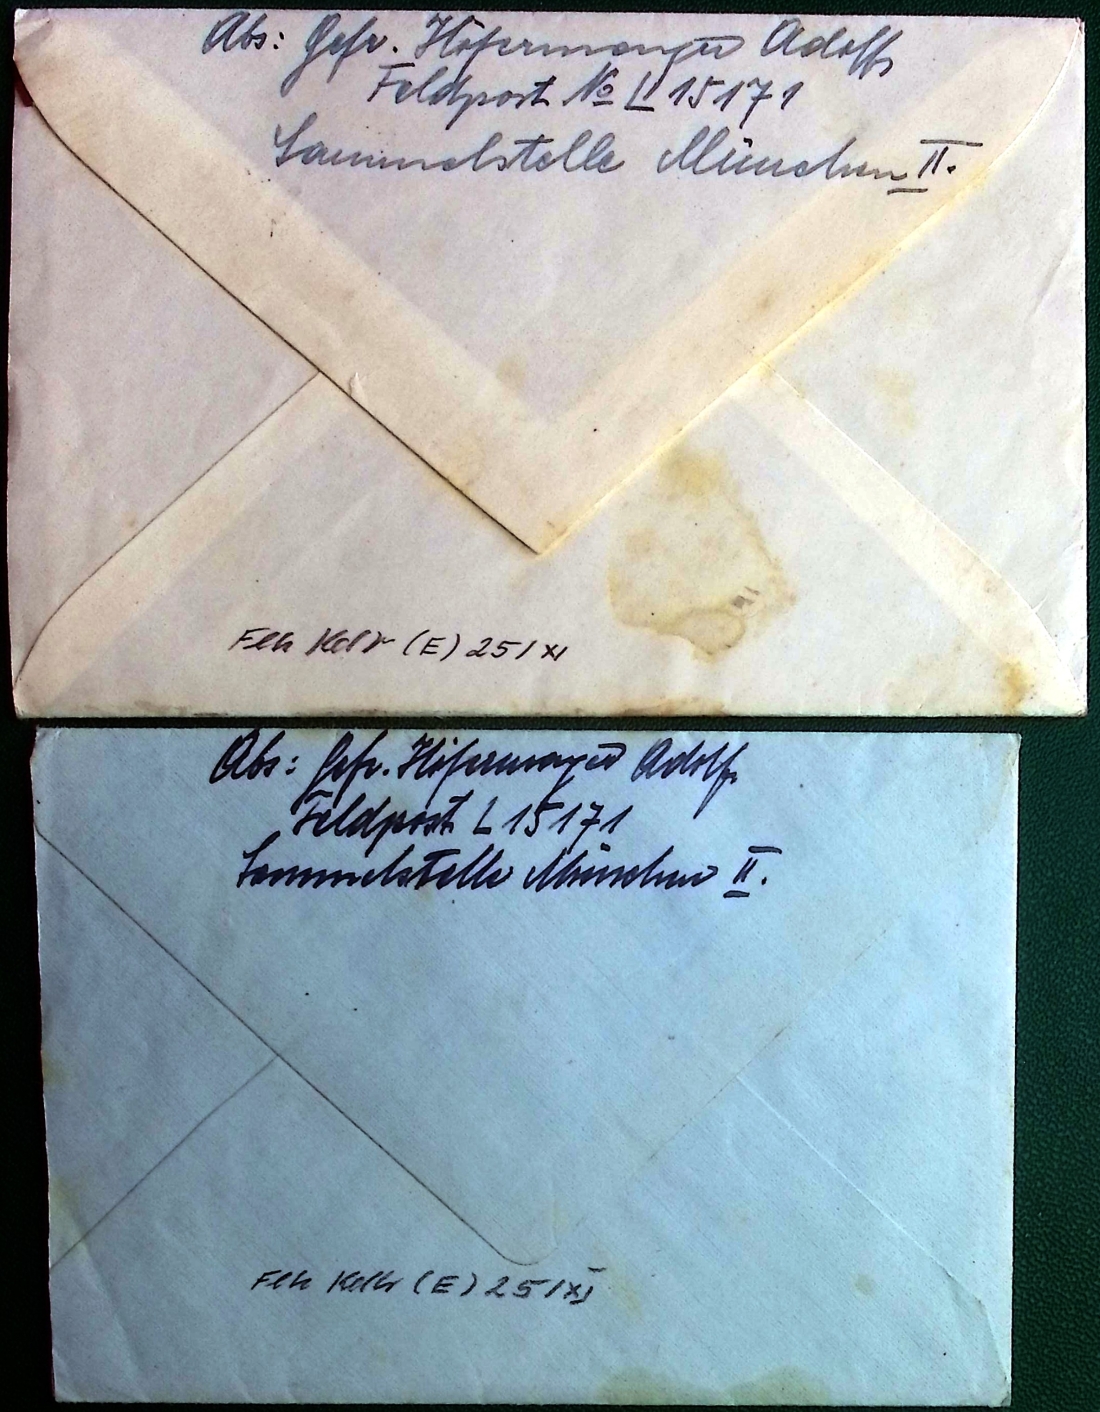 Abs: Gefr. Höfermayer Adolf
Feldpost No L 15171
Sammelstelle München II.
(E) 25/XI
Abs: Gefr. Höfermayer Adolf
Feldpost L 15171
Sammelstelle München II.
(E) 25/XI